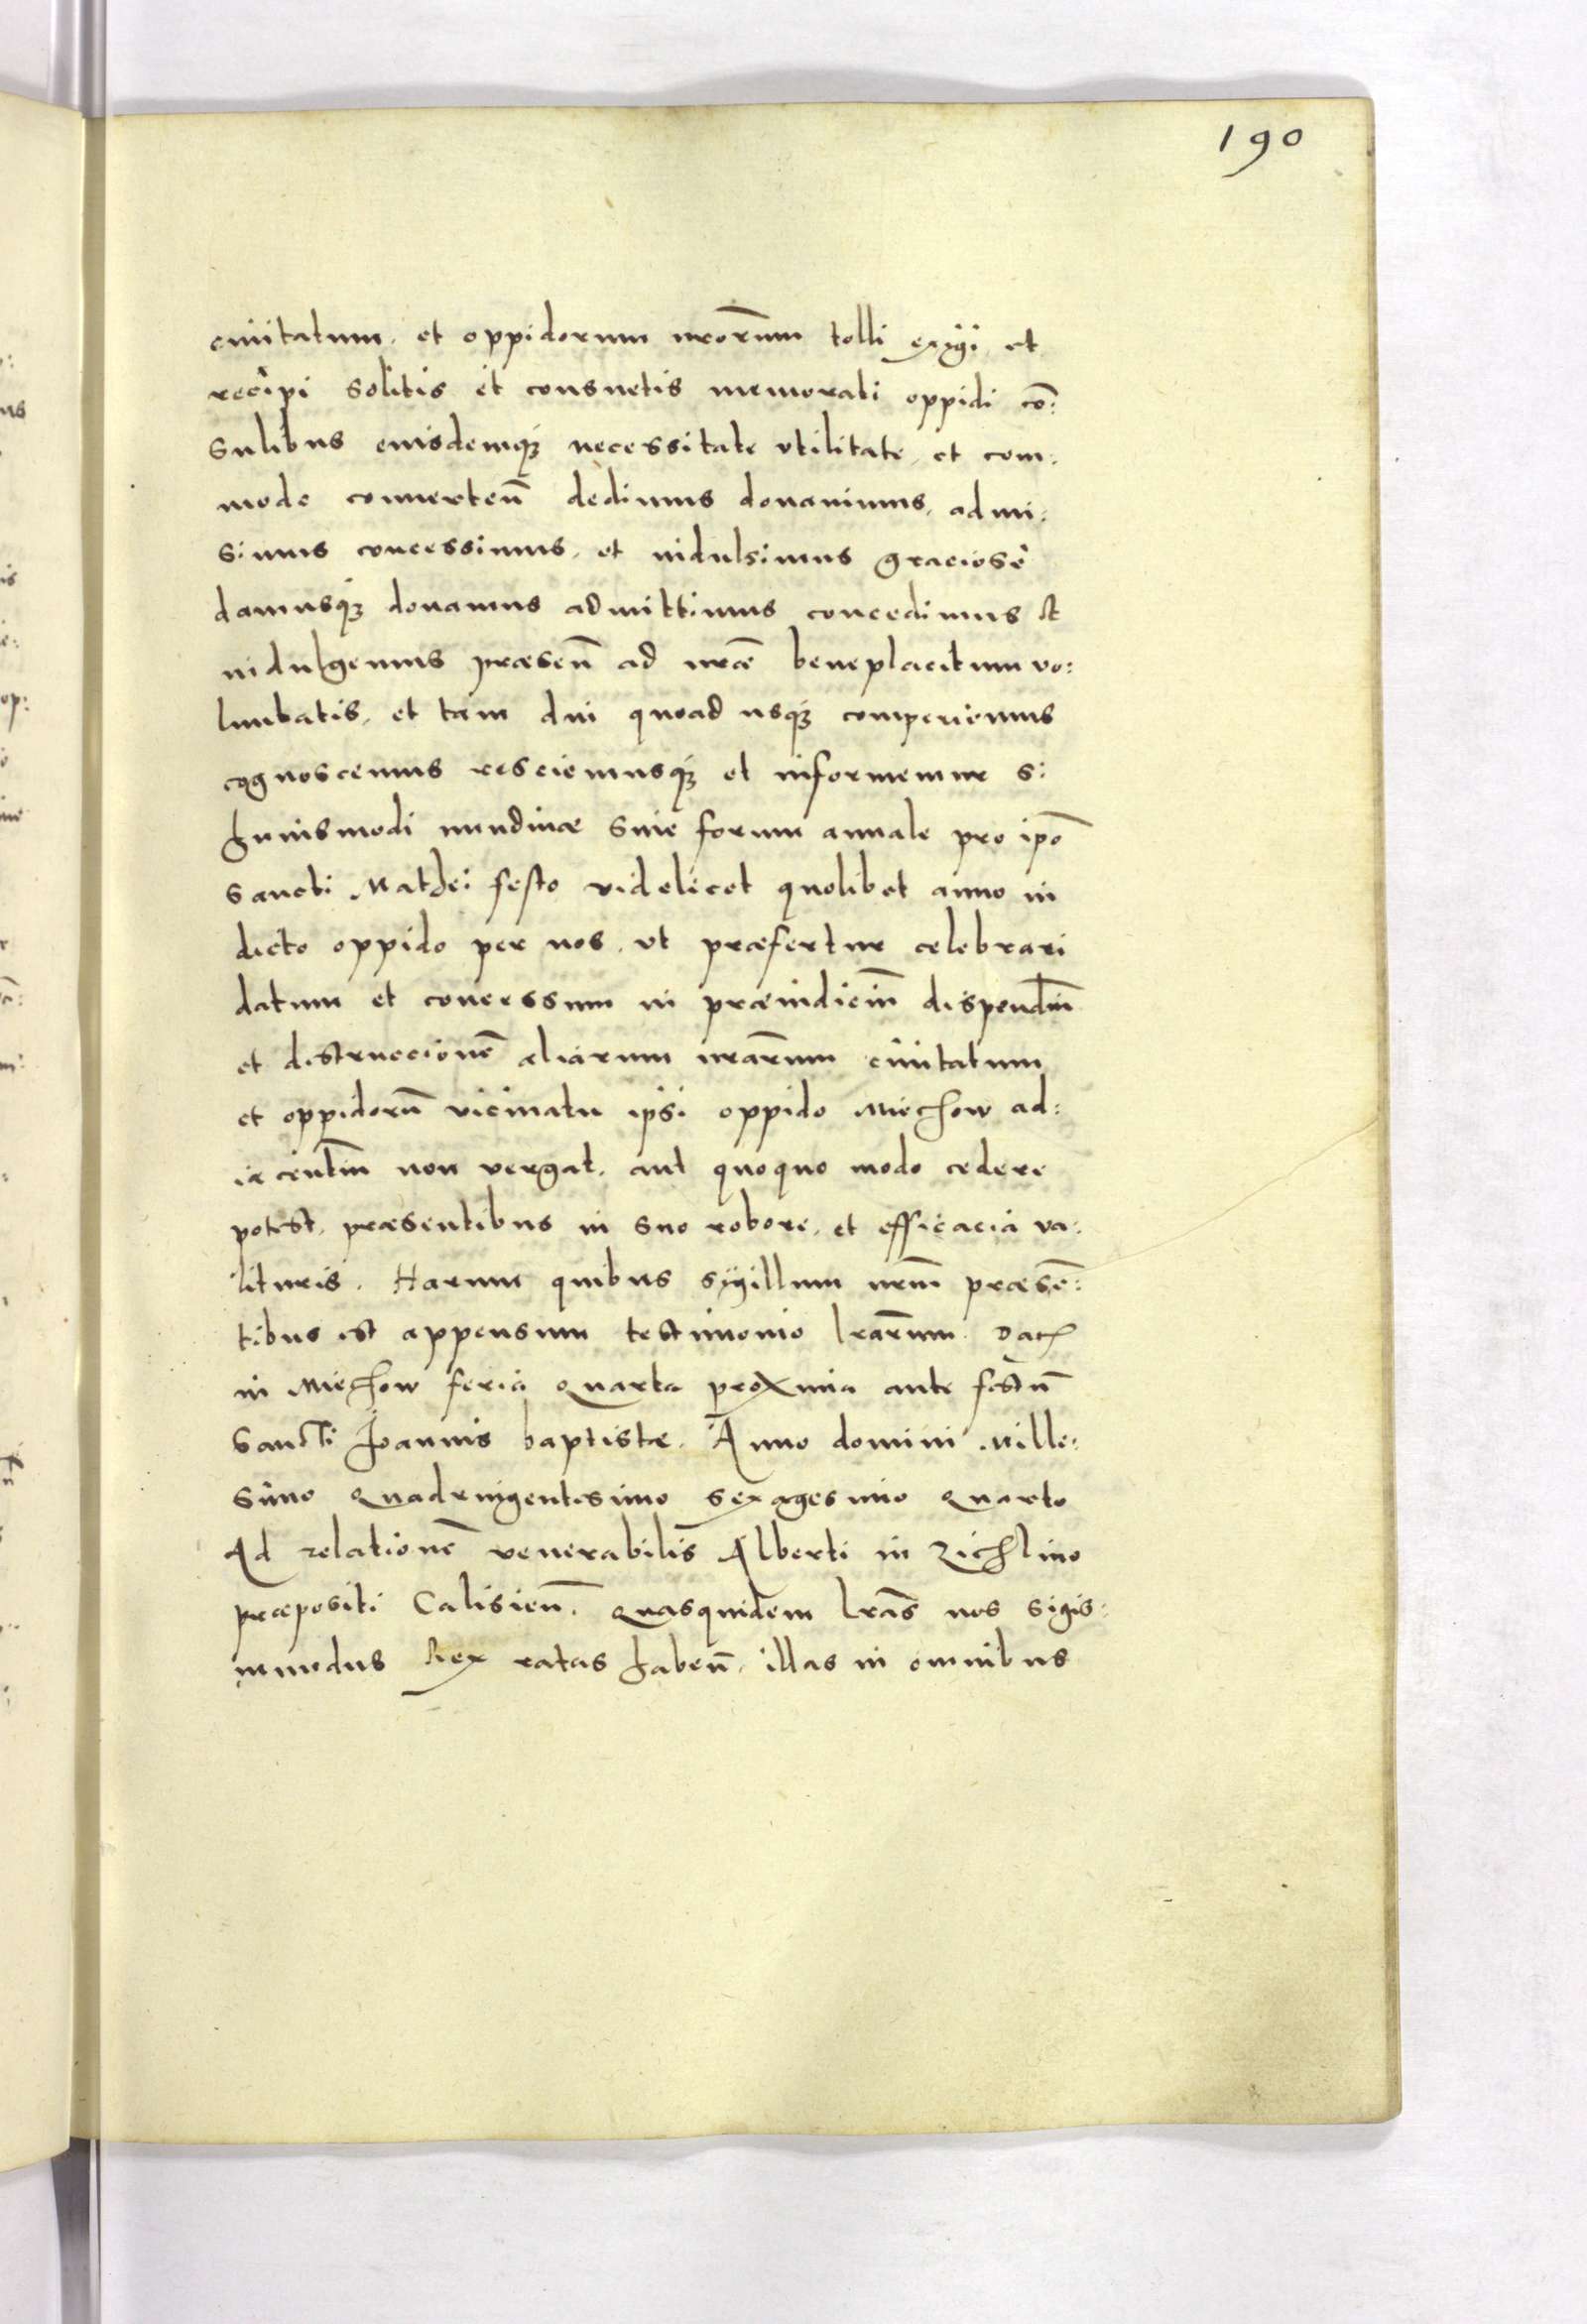 190
ciuitatum et oppidorum nrõrum tolli exigi et
recipi solitis et consuetis memorati oppidi cõ:
sulibus eiusdemq̃ necessitate vtilitate et com:
mode conuerteñ dedimus donauimus admi:
simus concessimus et indulsimus graciosè
damusq̃ donamus admittimus concedimus et
indulgemus præseñ ad nræ beneplacitum vo:
luntatis et tam diu quoad usq̃ comperiemus
cognoscemus resciemusq̃ et informemur si
huiusmodi nundinæ siue forum annale pro ipõ
sancti Mathei festo videlicet quolibet anno in
dicto oppido per nos vt præfertur celebrari
datum et concessum in præiudiciũ dispendiũ
et distruccionẽ aliarum nrãrum ciuitatum
et oppidorũ vicinatu ipsi oppido Miechow ad:
iacentiũ non vergat aut quoquo modo cedere
potest præsentibus in suo robore et efficacia va:
lituris. Harum quibus sigillum nrũm præsẽ:
tibus est appensum testimonio lrãrum Dat
in Miechow feria Quarta proxima ante festũ
Sancti Ioannis baptistæ. Anno domini Mille:
simo Quadringentesimo sexagesimo Quarto
Ad relationẽ venerabilis Alberti in Zichlino
præpositi Calisieñ. Quasquidem lrãs nos Sigis:
mundus Rex ratas habeñ illas in omnibus